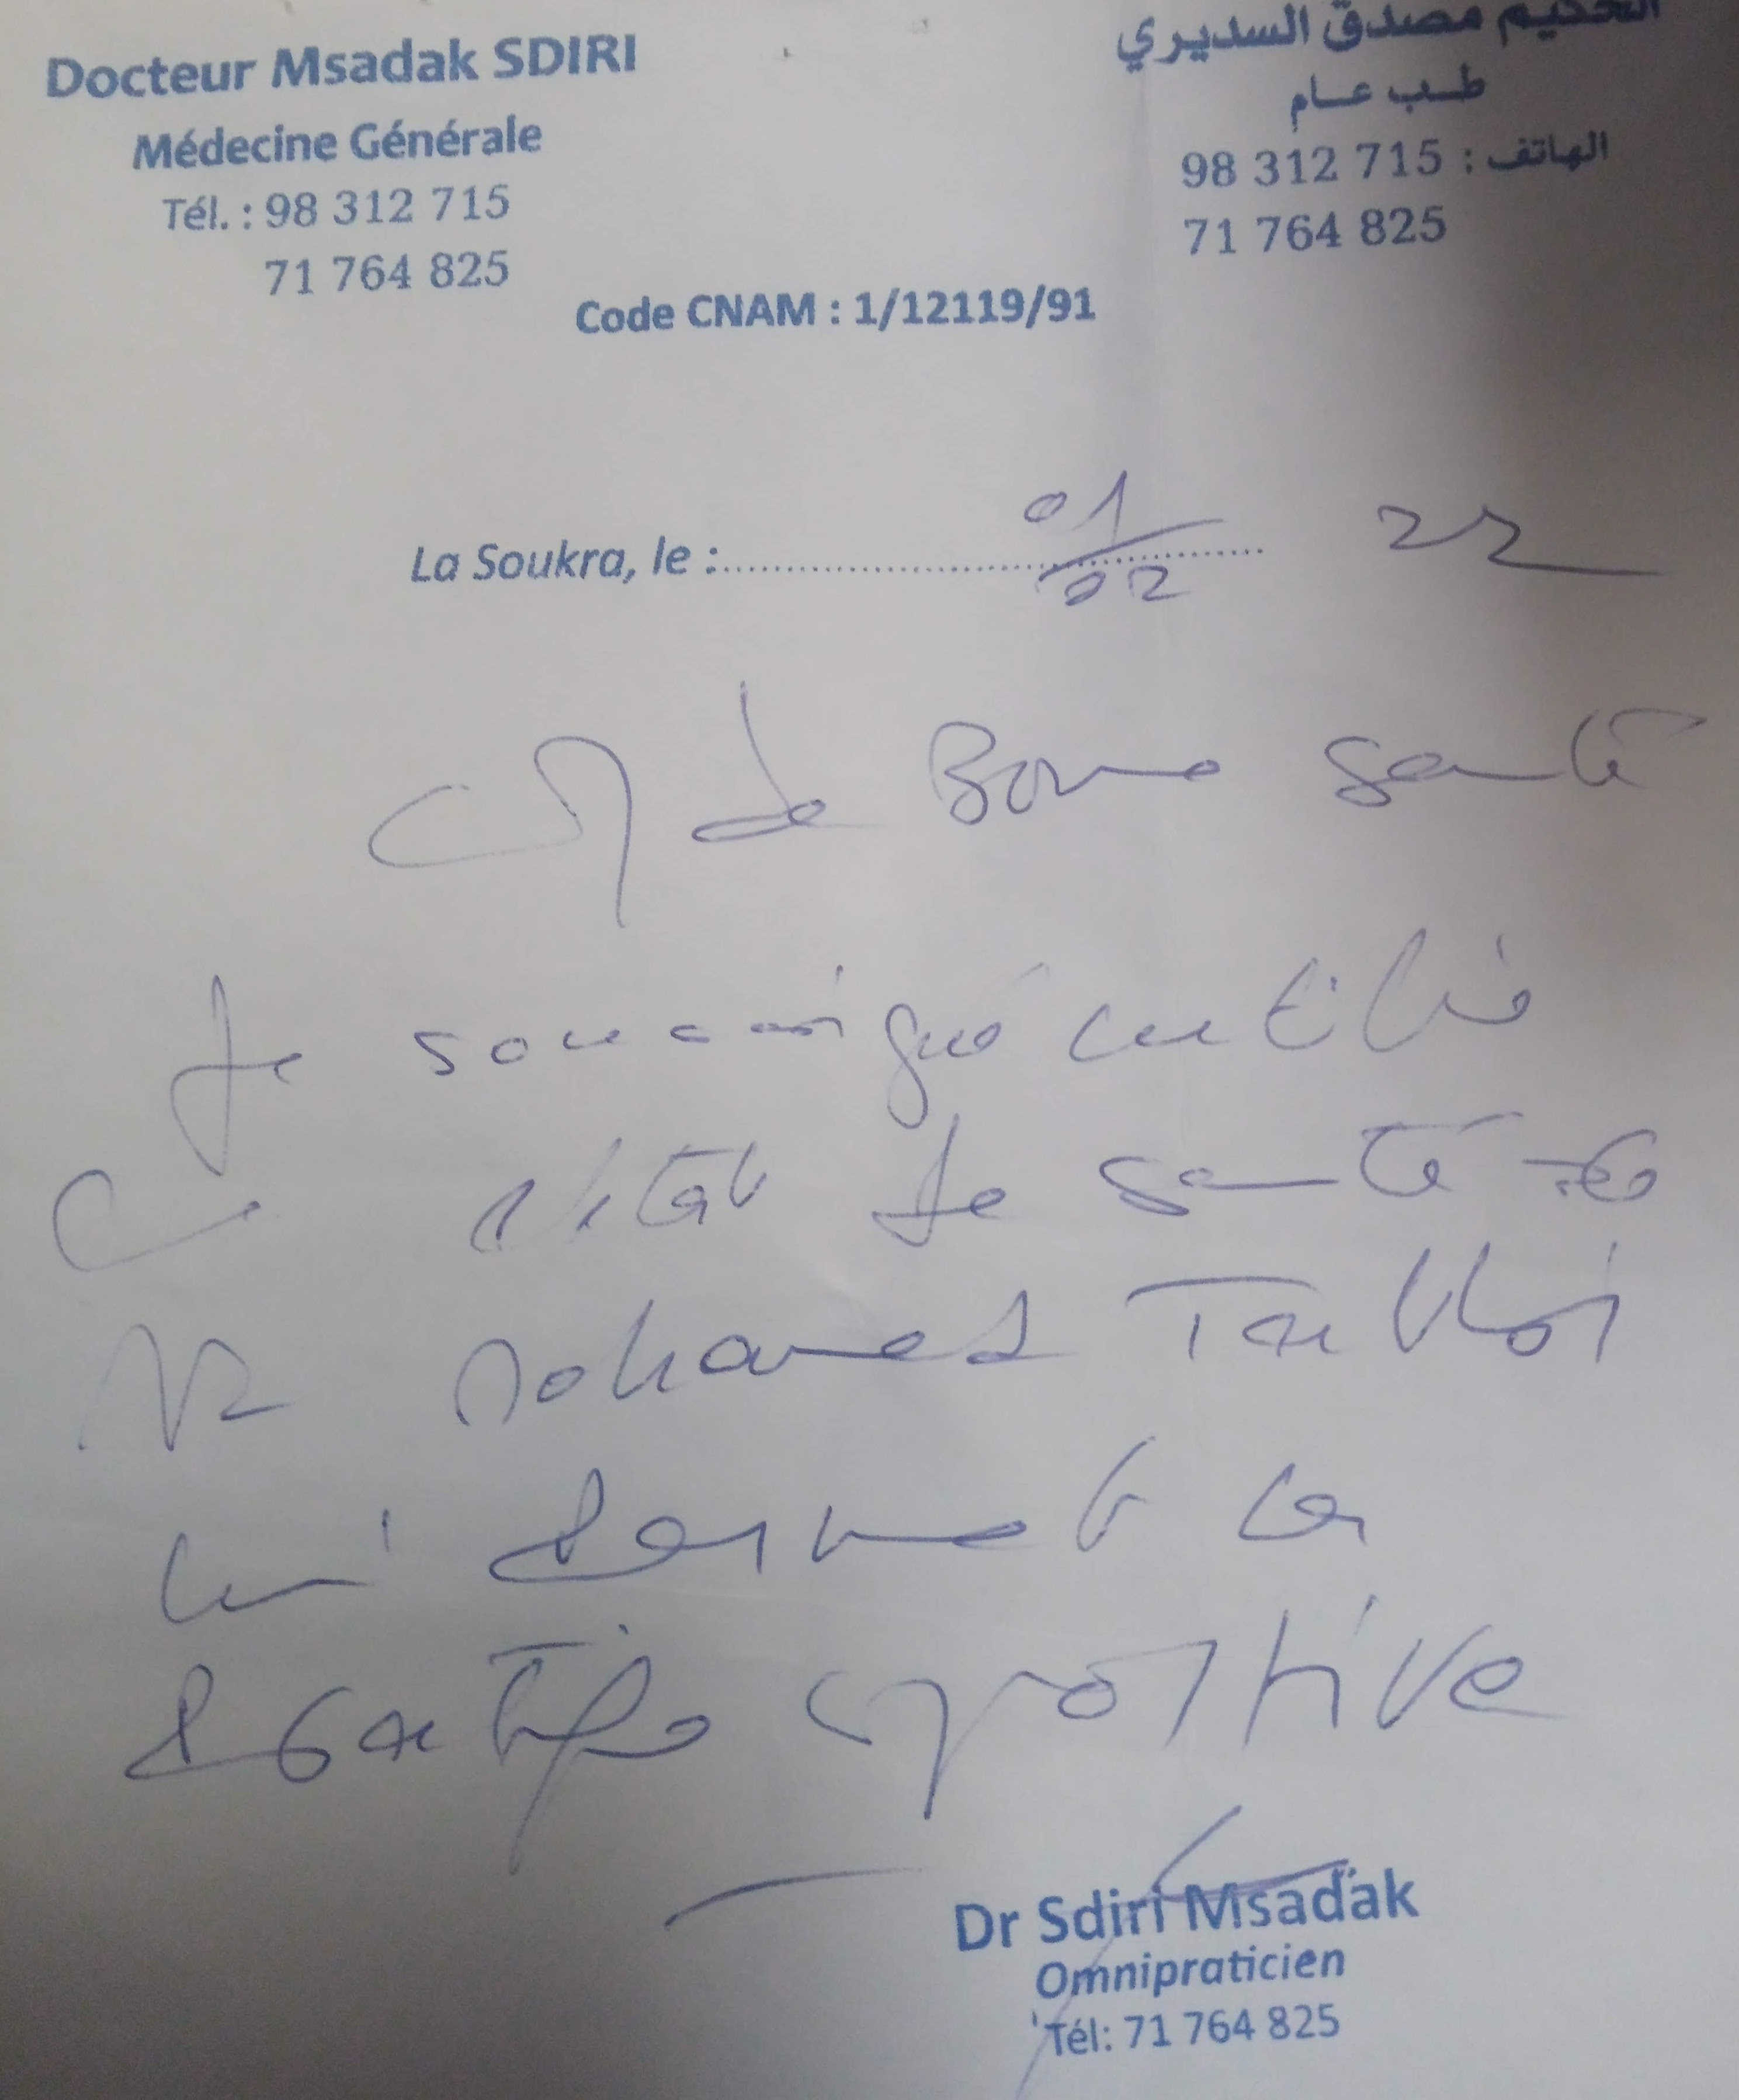 Docteur Msadak SDIRI
Médecine Générale
Tél. : 98 312 715
71 764 825
الحكيم مصدق السديري
طب عام
الهاتف : 98 312 715
71 764 825
Code CNAM : 1/12119/91
La Soukra, le : 01/02 22
de Bonne santé
Je soussigné certifie
que l'état de santé de
Mr Mohamed
lui permet la
pratique sportive
Dr Sdiri Msadak
Omnipraticien
Tél: 71 764 825